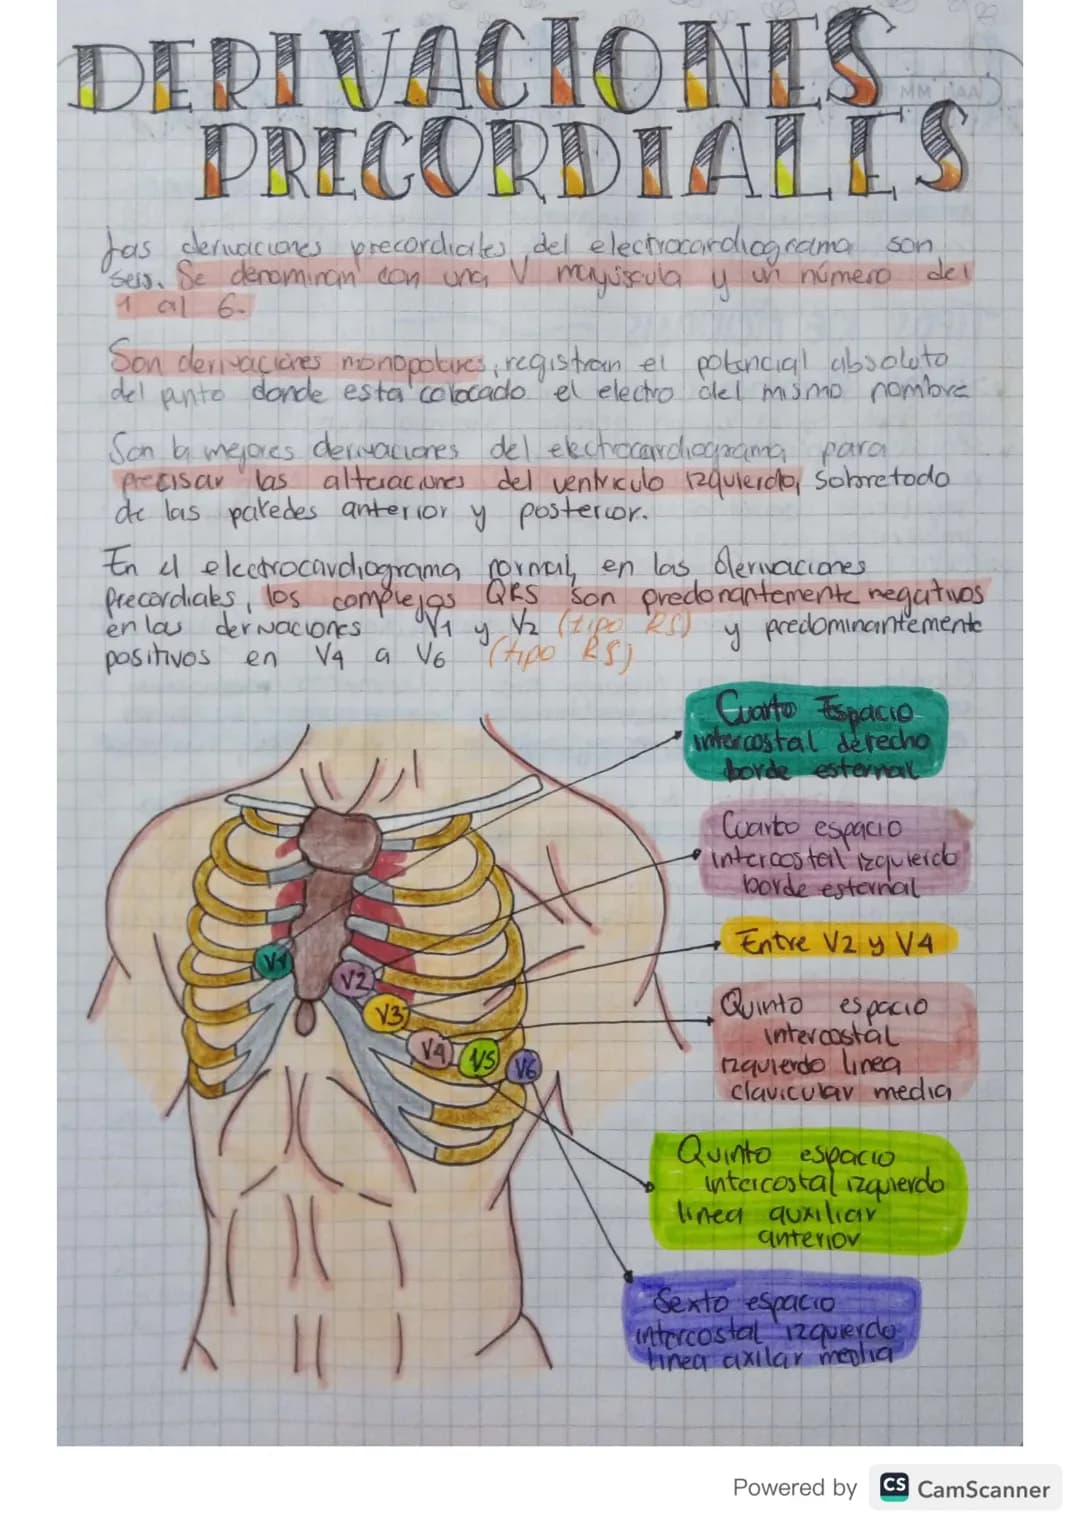 DERIVACIONES
PRECORDIALES
MM AA
Las derivaciones precordiales del electrocardiograma son
seis. Se denominan con una V mayúscula y un número del
1 al 6.
Son derivaciones monopolares, registran el potencial absoluto
del punto donde esta colocado el electro del mismo nombre
Son la mejores derivaciones del electrocardiograma para
precisar las alteraciones del ventriculo izquierdo, sobretodo
de las paredes anterior y posterior.
En el electrocardiograma normal, en las derivaciones
precordiales, los complejos QRS son predonantemente negativos
en las derivaciones V1 y V2 (tipo RS) y predominantemente
positivos en V4 a V6 (tipo RS)
Cuarto Espacio
intercostal derecho
borde esternal
Cuarto espacio
intercostal izquierdo
borde esternal
Entre V2 y V4
Quinto espacio
intercostal
izquierdo linea
clavicular media
Quinto espacio
intercostal izquierdo
linea auxiliar
anterior
Sexto espacio
intercostal izquierdo
linea axilar media
V1
V2
V3
V4
V5
V6
Powered by CS CamScanner